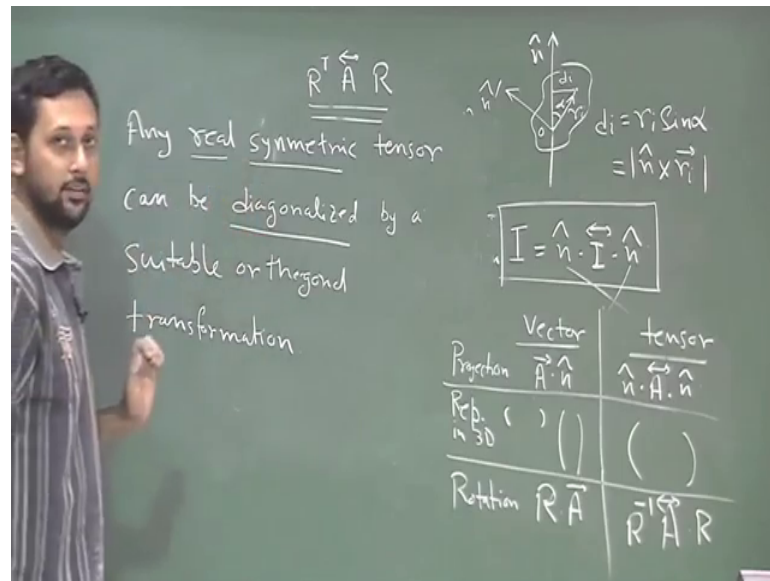 Rᵀ A⃡ R
Any real symmetric tensor
can be diagonalized by a
suitable orthogonal
transformation
n̂
n̂'
di
α
ri
o
di = ri Sinα
= |n̂ × r⃗i|
I = n̂ · I⃡ · n̂
Vector tensor
Projection A⃗ · n̂ n̂ · A⃡ · n̂
Rep. in 3D ( ) ( ) ( )
Rotation R · A⃗ R⁻¹ A⃡ · R